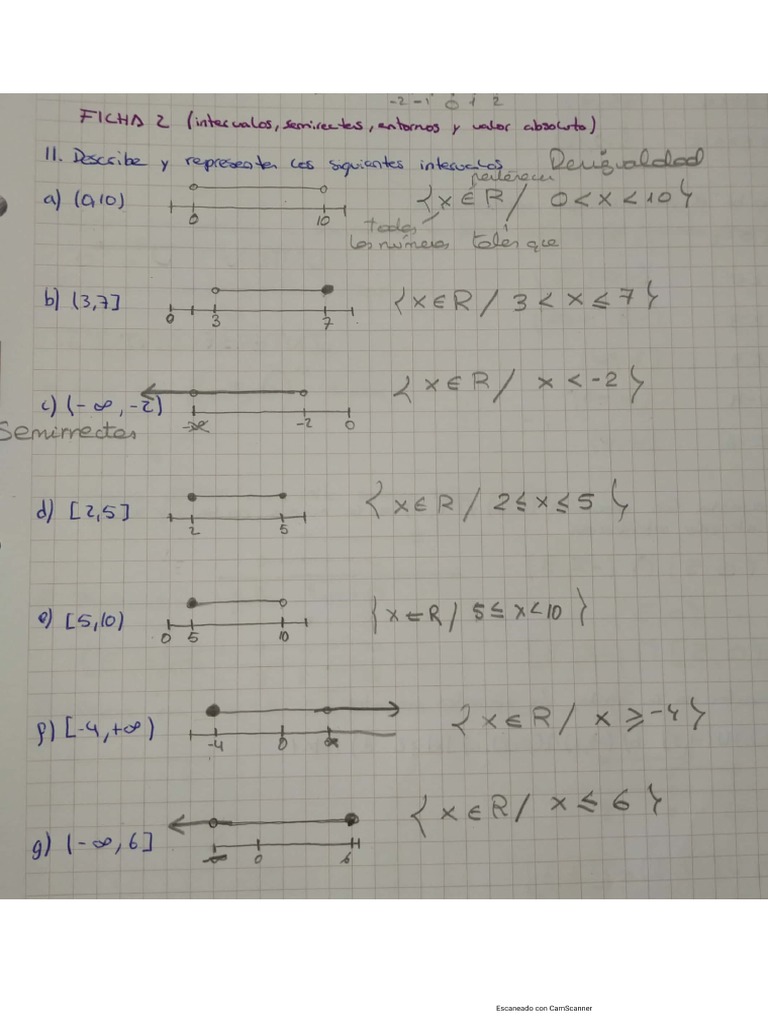 -2 -1 0 1 2
FICHA 2 (intervalos, semirectes, entornos y valor absoluto)
11. Describe y representa los siguientes intervalos. Desigualdad
pertenecen
a) (0,10) 0 10 { x ∈ R / 0 < x < 10 }
todos
los números tales que
b) (3,7] 0 3 7 { x ∈ R / 3 < x ≤ 7 }
c) (-∞, -2) -∞ -2 0 { x ∈ R / x < -2 }
Semirrectas
d) [2,5] 2 5 { x ∈ R / 2 ≤ x ≤ 5 }
e) [5,10) 0 5 10 { x ∈ R / 5 ≤ x < 10 }
f) [-4, +∞) -4 0 ∞ { x ∈ R / x ≥ -4 }
g) (-∞, 6] -∞ 0 6 { x ∈ R / x ≤ 6 }
Escaneado con CamScanner